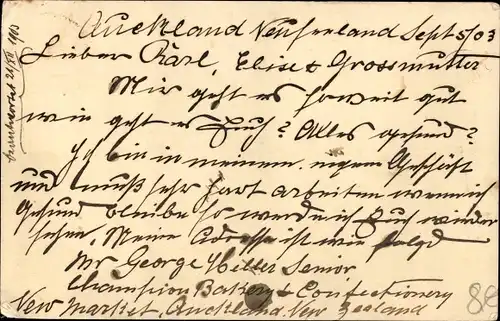 Auckland Neuseeland Sept 5/03
Lieber Karl, Elise & Grossmutter
Mir geht es soweit gut
wie geht es Euch? Alles gesund?
Ich bin in meinem eigenen Geschäft
und muß sehr hart arbeiten wenn ich
gesund bleibe so werde ich Euch wieder
sehen. Meine Adresse ist wie folgd
Mr George Heller Senior
Champion Bakery & Confectionery
New Market, Auckland, New Zealand